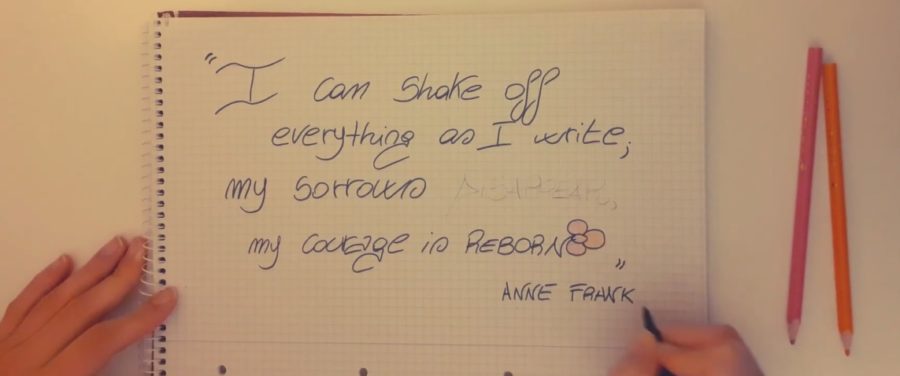 "I can shake off
everything as I write;
my sorrows DISAPPEAR,
my courage is REBORN"
ANNE FRANK